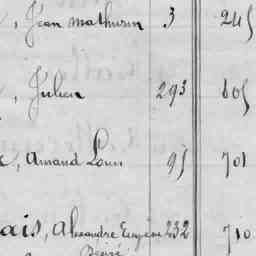 , Jean mathurin 3 245
, Julien 293 605
, Amand Louis 95 701
ais, Alexandre Eugène 232 710
Désiré